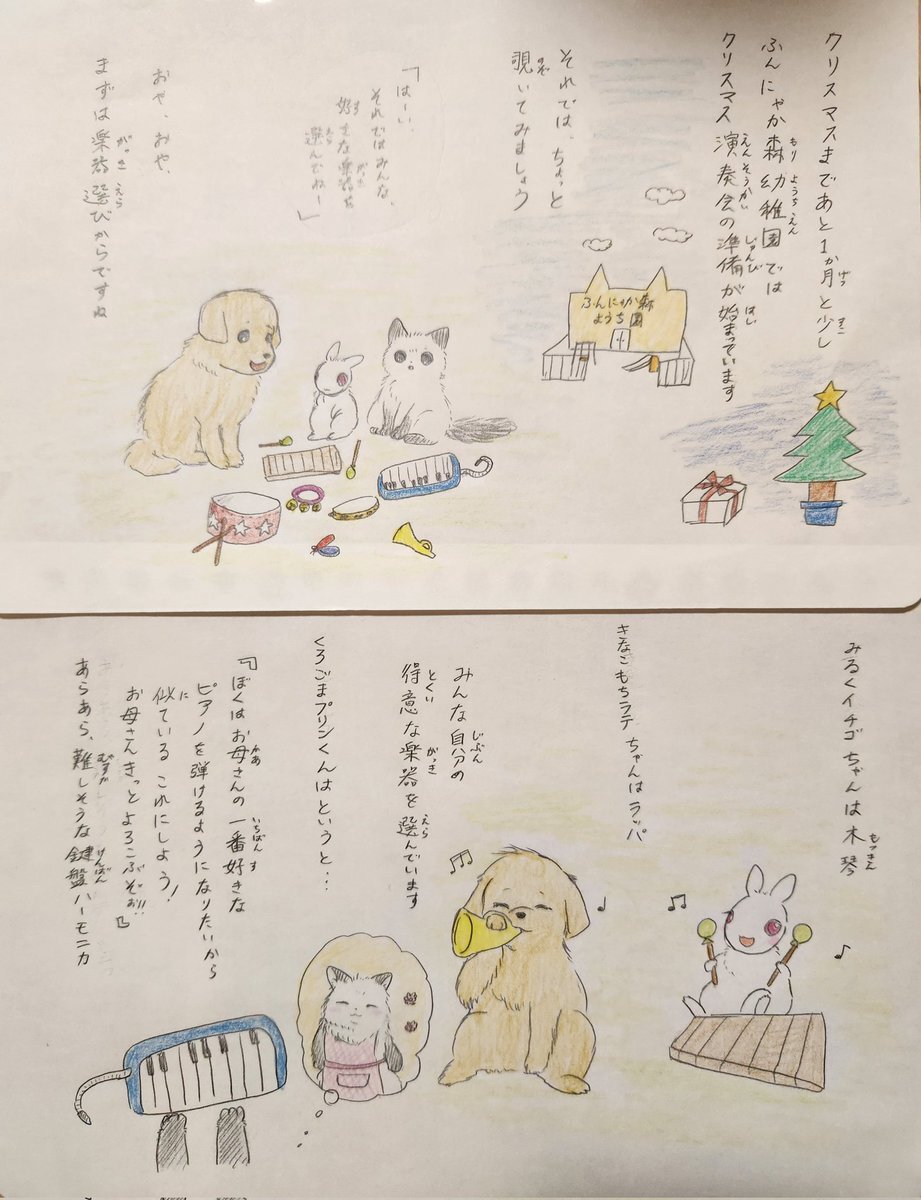 クリスマスまであと1か月と少し
ふんにゃか森幼稚園では
クリスマス演奏会の準備が始まっています
ふんにゃか森
ようち園
それでは、ちょっと
覗いてみましょう
「はーい、
それではみんな、
好きな楽器を
選んでねー」
おや、おや、
まずは楽器選びからですね
みるくイチゴちゃんは木琴
きなこもちラテちゃんはラッパ
みんな自分の
得意な楽器を選んでいます
くろごまプリンくんはというと…
『ぼくはお母さんの一番好きな
ピアノを弾けるようになりたいから
似ているこれにしよう!
お母さんきっとよろこぶぞぉ!!』
あらあら、難しそうな鍵盤ハーモニカ